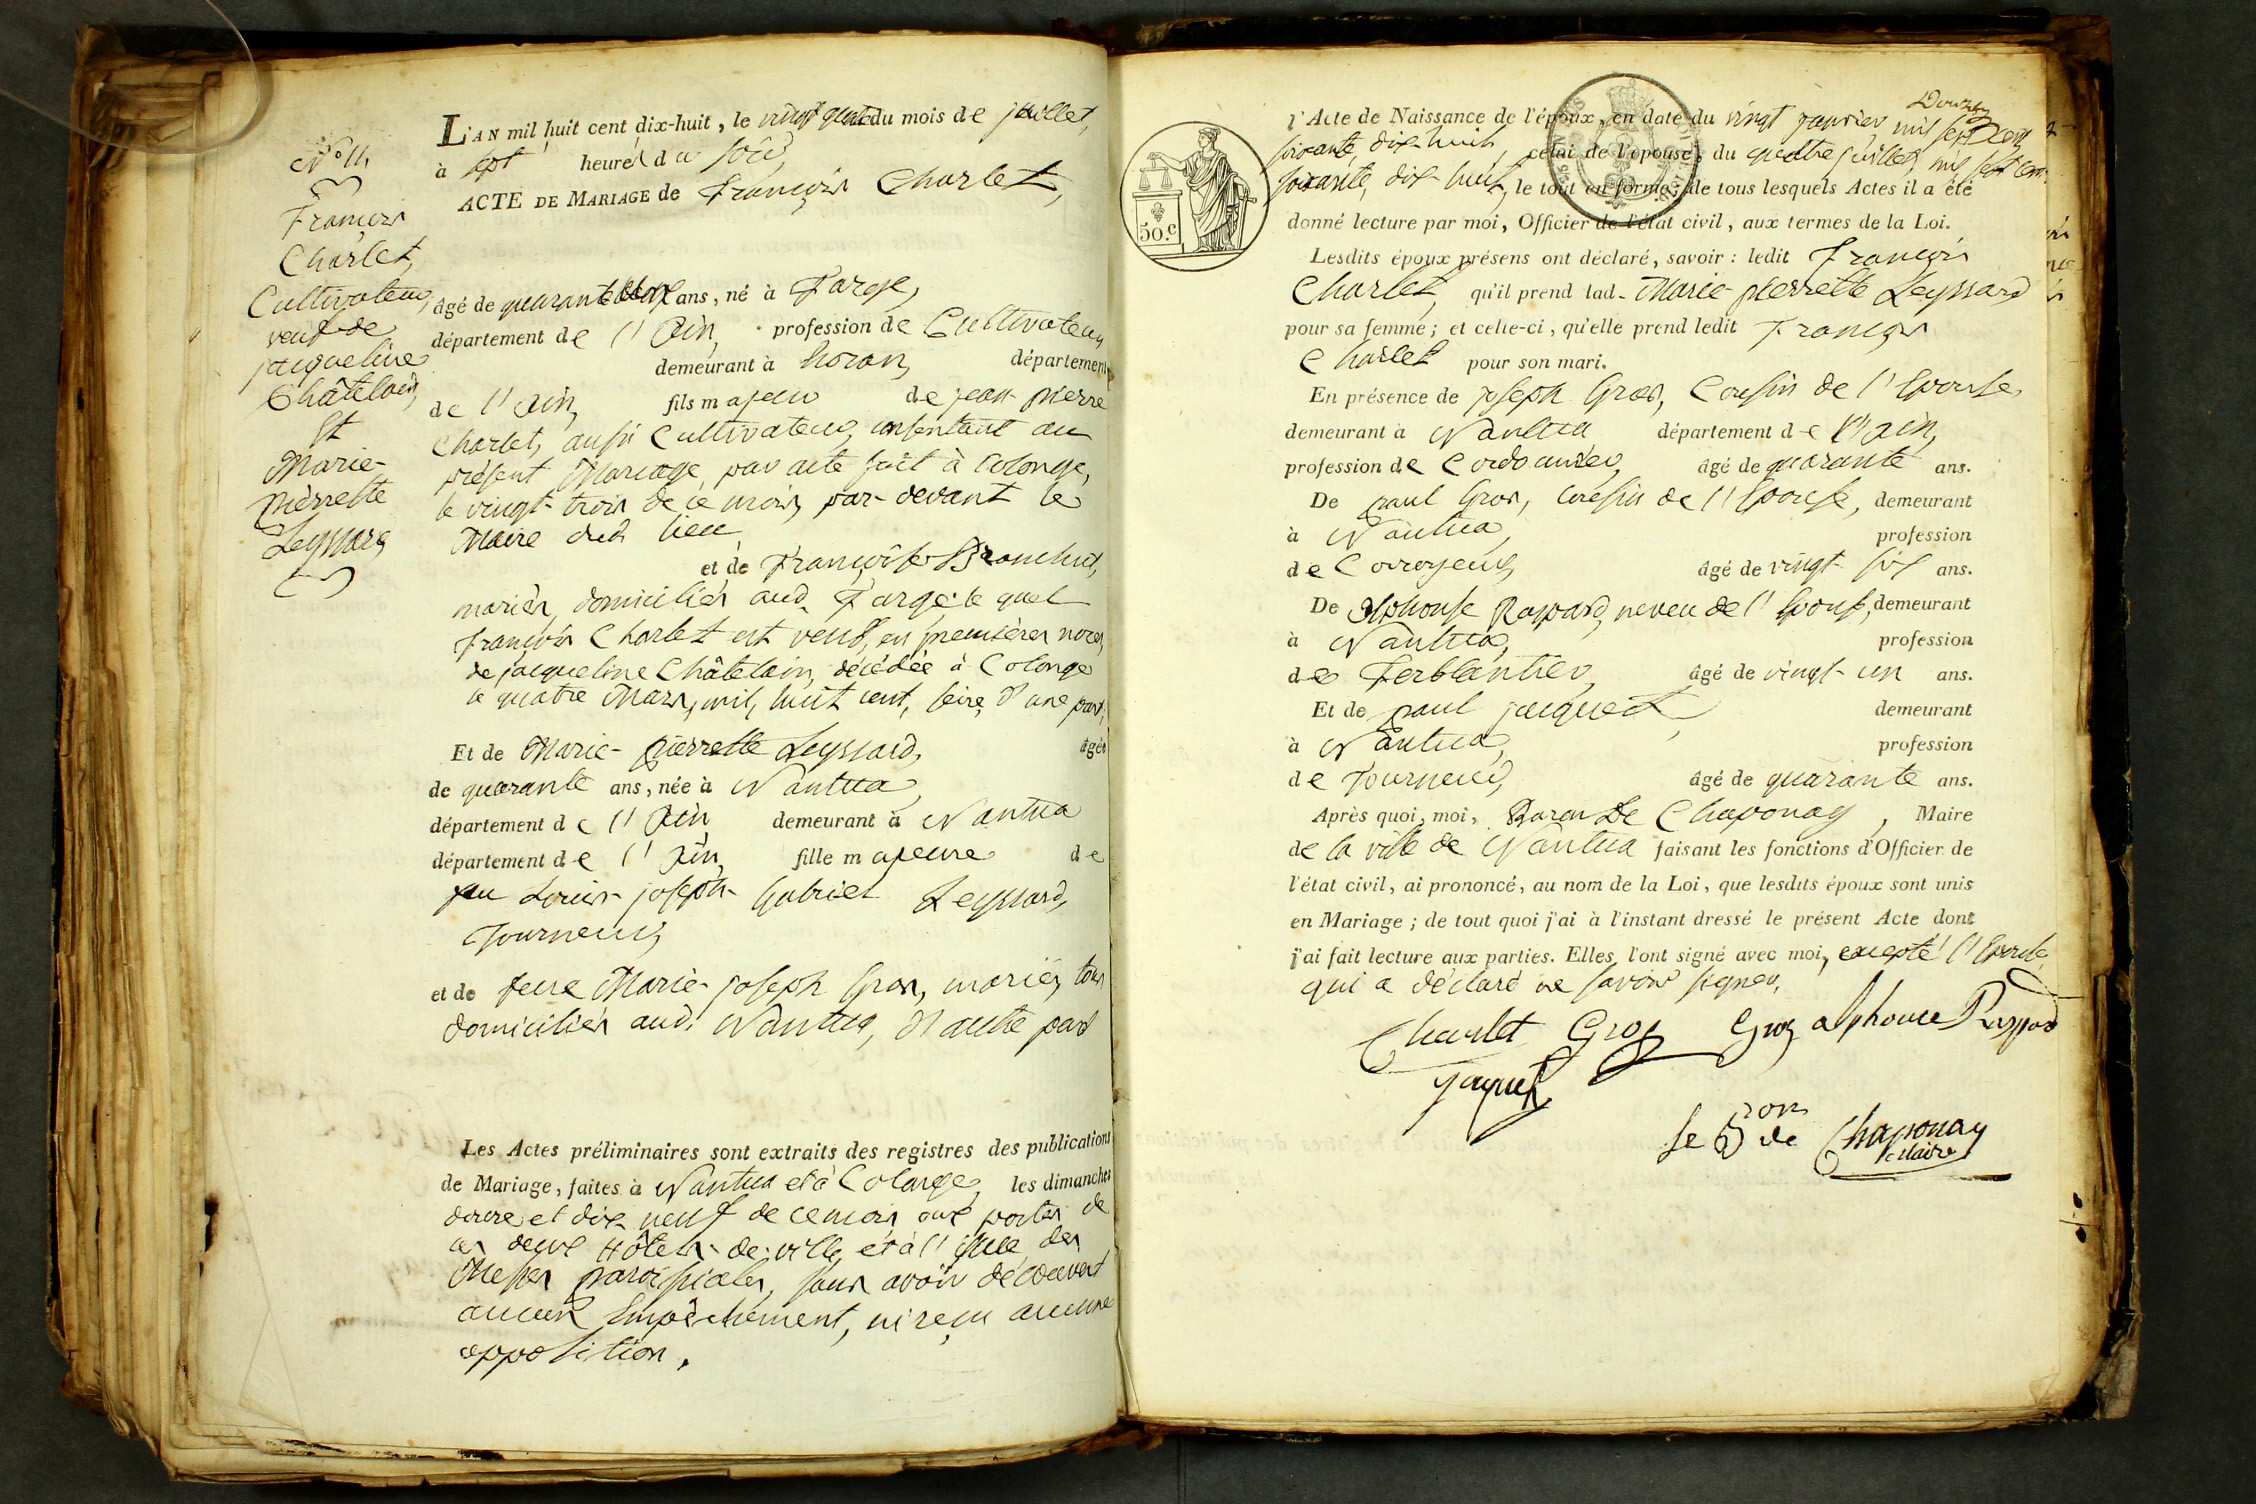 N.° 11.
François
Charlet,
Cultivateur,
veuf de
jacqueline
Châtelain,
Et
Marie-
pierrette
Leyssard
L'AN mil huit cent dix-huit, le vingt quatre du mois de juillet,
à sept heures du soir,
ACTE DE MARIAGE de François Charlet,
âgé de quarante ans, né à Farge,
département de l'Ain, profession de Cultivateur,
demeurant à horan, département
de l'Ain, fils majeur de jean-pierre
Charlet, aussi Cultivateur, consentant au
présent Mariage, par acte fait à Colonge,
le vingt-trois de ce mois, par-devant le
Maire dud. lieu
et de Françoise Branchut,
mariés, domiciliés aud. Farge; le quel
François Charlet est veuf, en premières noces,
de jacqueline Châtelain, décédée à Colonge
le quatre Mars, mil, huit cent, seize, d'une part,
Et de Marie-pierrette Leyssard, âgée
de quarante ans, née à Nantua,
département de l'Ain, demeurant à Nantua
département de l'Ain, fille majeure de
feu Louis-joseph-Gabriel Leyssard,
Tourneur,
et de feue Marie-joseph Gros, mariés, tous
domiciliés aud. Nantua, d'autre part
Les Actes préliminaires sont extraits des registres des publications
de Mariage, faites à Nantua et à Colonge, les dimanches
douze et dix-neuf de ce mois aux portes de
ces deux Hôtels-de-ville, et à l'issue des
Messes paroissiales, sans avoir découvert
aucun Empêchement, ni reçu aucune
opposition.
50.c
l'Acte de Naissance de l'époux, en date du vingt janvier mil sept cent
soixante, dix-huit, celui de l'épouse, du quatre juillet, mil sept cent
soixante, dix-huit, le tout en forme; de tous lesquels Actes il a été
donné lecture par moi, Officier de l'état civil, aux termes de la Loi.
Lesdits époux présens ont déclaré, savoir: ledit François
Charlet, qu'il prend lad. Marie-pierrette Leyssard
pour sa femme; et celle-ci, qu'elle prend ledit François
Charlet pour son mari.
En présence de joseph Gros, Cousin de l'Epouse,
demeurant à Nantua département de l'Ain,
profession de Cordonnier, âgé de quarante ans.
De paul Gros, Cousin de l'Epouse, demeurant
à Nantua, profession
de Corroyeur, âgé de vingt-six ans.
De Alphonse Raspard, neveu de l'Epouse, demeurant
à Nantua, profession
de Ferblantier, âgé de vingt-un ans.
Et de paul jacquet, demeurant
à Nantua, profession
de Tourneur, âgé de quarante ans.
Après quoi, moi, Baron De Chaponay, Maire
de la ville de Nantua faisant les fonctions d'Officier de
l'état civil, ai prononcé, au nom de la Loi, que lesdits époux sont unis
en Mariage; de tout quoi j'ai à l'instant dressé le présent Acte dont
j'ai fait lecture aux parties. Elles l'ont signé avec moi, excepté l'Epouse,
qui a déclaré ne savoir signer,
Charlet Gros Gros alphonse Raspard
jaquet
le Bon de Chaponay
Maire